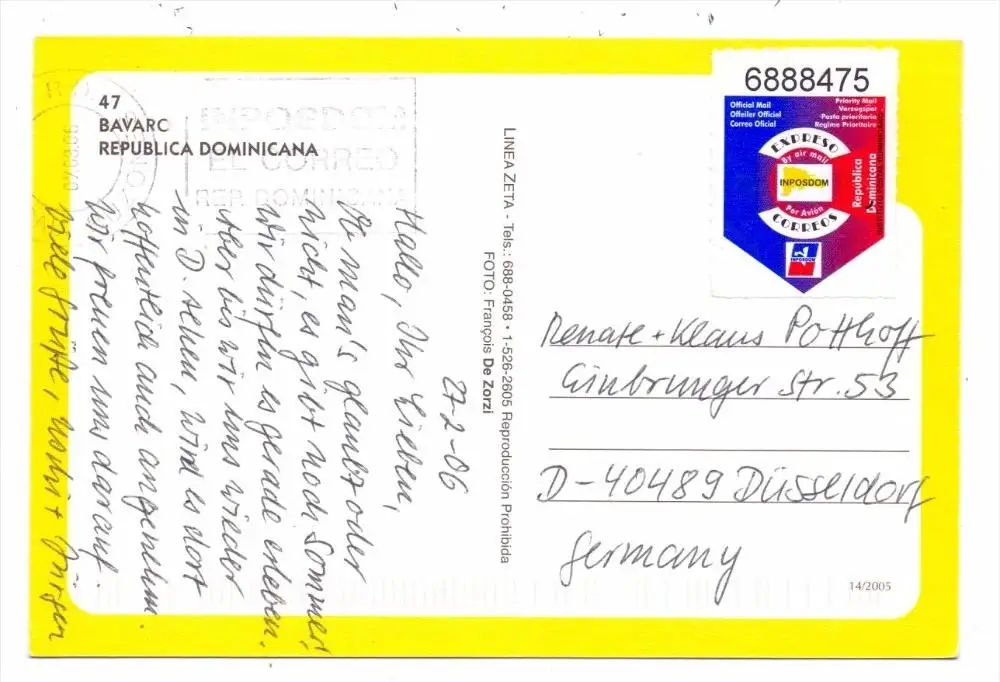 47
BAVARO
REPUBLICA DOMINICANA
INPOSDOM
EL CORREO
REP. DOMINICANA
27-2-06
Hallo, Ihr Lieben,
Ob man's glaubt oder
nicht, es gibt noch Sommer,
wir dürfen es gerade erleben,
Aber bis wir uns wieder
in D. sehen, wird es dort
hoffentlich auch angenehm.
Wir freuen uns darauf.
Viele Grüße, + Jürgen
LINEA ZETA - Tels.: 688-0458 • 1-526-2605 Reproducción Prohibida
FOTO: François De Zorzi
6888475
Official Mail
Offeiler Official
Correo Oficial
Priority Mail
Verzugspot
Posta prioritaria
Regime Prioritaire
EXPRESO
By air mail
INPOSDOM
Par Avión
CORREOS
República
Dominicana
INPOSDOM
Renate + Klaus Potthoff
Einbrunger Str. 53
D-40489 Düsseldorf
Germany
14/2005